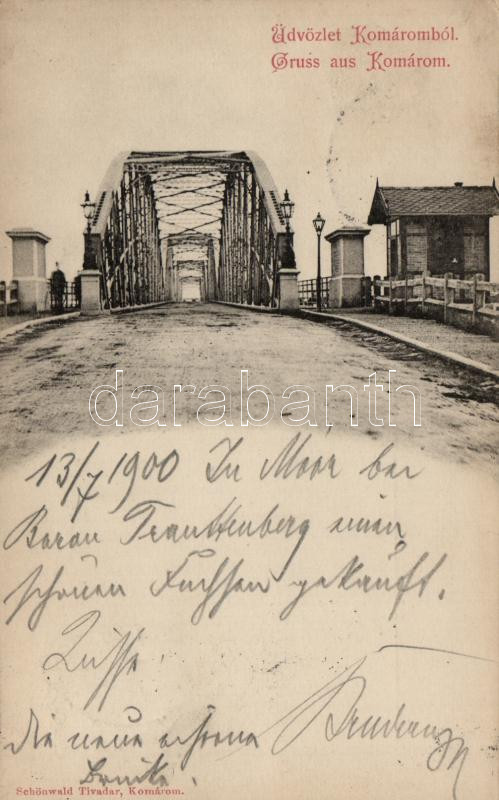 Üdvözlet Komáromból.
Gruss aus Komárom.
darabanth
13/7 1900 In Moór bei
Baron Trauttenberg einen
schönen Fuchsen gekauft.
Küsse
die neue eiserne
Brücke.
Schönwald Tivadar, Komárom.